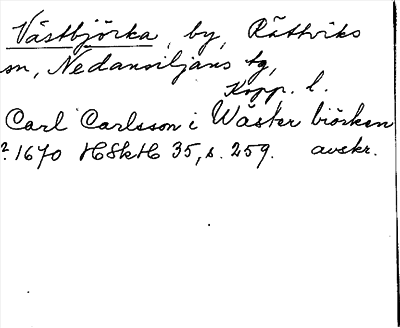 Västbjörka, by, Rättviks
sn, Nedansiljans tg,
Kopp. l.
Carl Carlsson i Wäster biörken
? 1670 HSkH 35, s. 259. avskr.